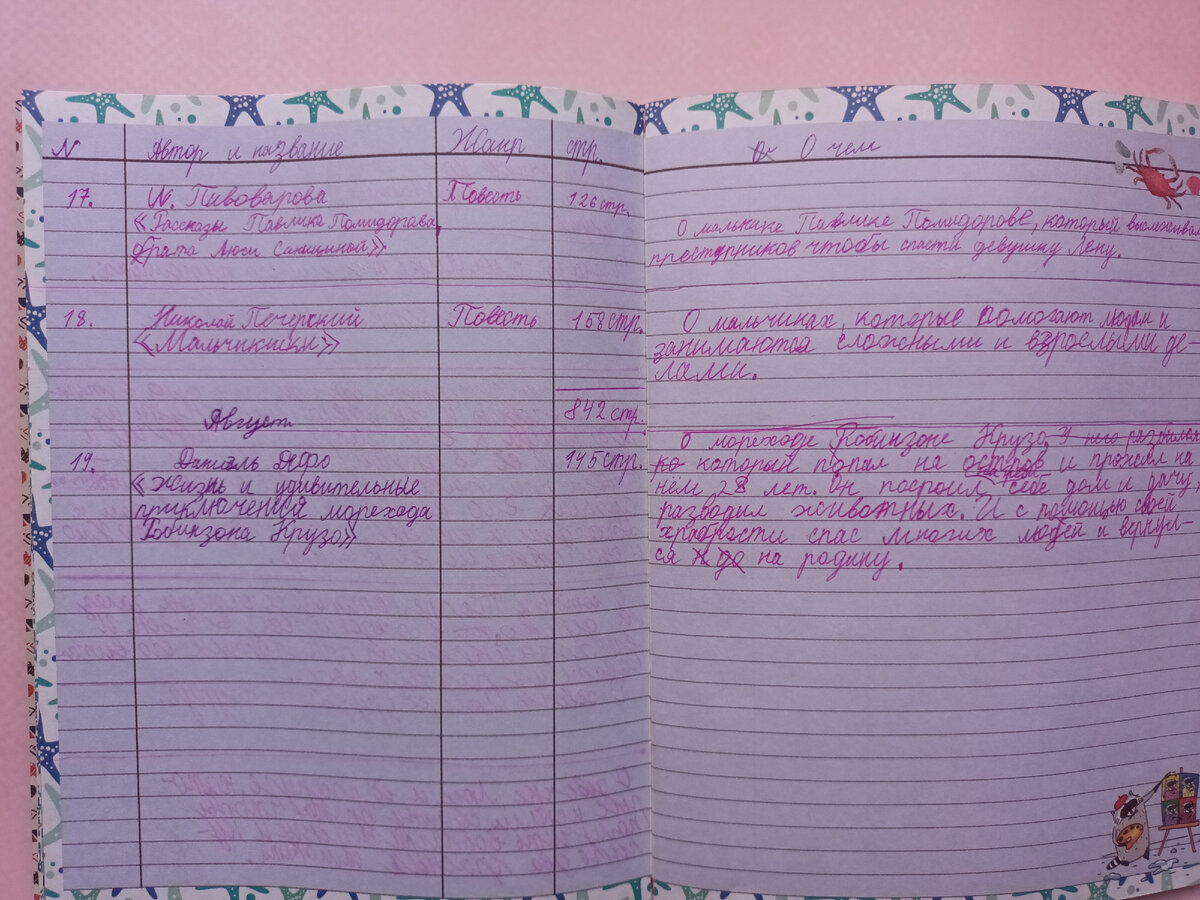 N Автор и название Жанр стр. О чем
17. И. Пивоварова Повесть 126 стр.
«Рассказы Павлика Помидорова,
брата Люси Синицыной»
О мальчике Павлике Помидорове, который выслеживал
преступников чтобы спасти девушку Лену.
18. Николай Печерский Повесть 158 стр.
«Мальчишки»
О мальчиках, которые помогают людям и
занимаются сложными и взрослыми де-
лами.
842 стр.
Август
19. Даниэль Дефо 145 стр.
«Жизнь и удивительные
приключений морехода
Робинзона Крузо»
О мореходе Робинзоне Крузо,
который попал на остров и прожил на
нём 28 лет. Он построил себе дом и дачу,
разводил животных. И с помощью своей
храбрости спас многих людей и вернул-
ся на родину.